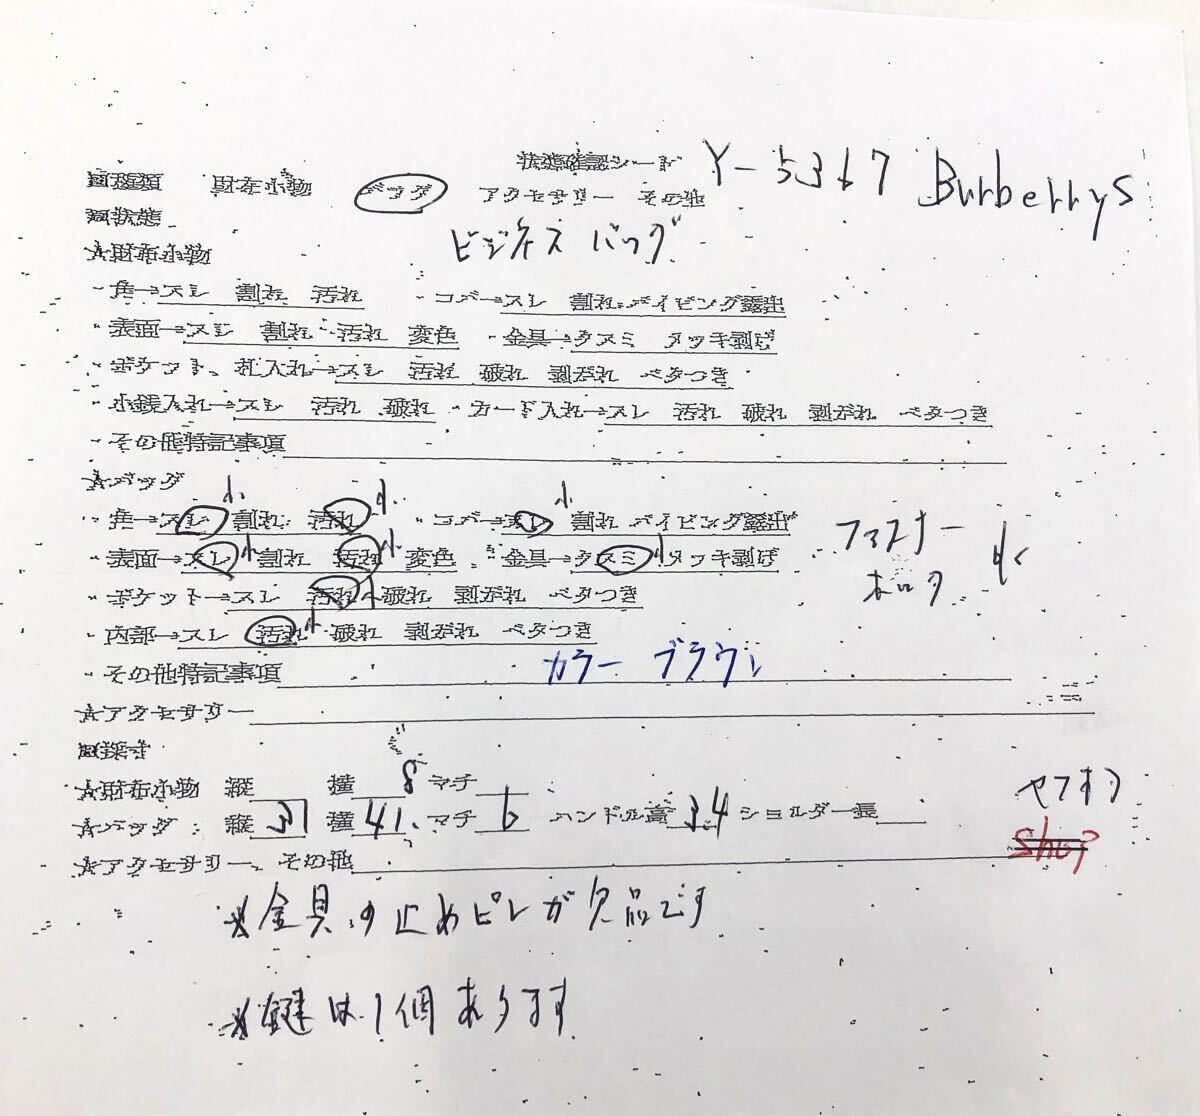 状態確認シート Y-5367 Burberrys
□種類 財布小物 バッグ アクセサリー その他
□状態 ビジネスバッグ
★財布小物
・角→スレ 割れ 汚れ ・コバ→スレ 割れ パイピング露出
・表面→スレ 割れ 汚れ 変色 ・金具→クスミ メッキ剥げ
・ポケット、札入れ→スレ 汚れ 破れ 剥がれ ベタつき
・小銭入れ→スレ 汚れ 破れ ・カード入れ→スレ 汚れ 破れ 剥がれ ベタつき
・その他特記事項
★バッグ
・角→スレ小 割れ 汚れ小 ・コバ→スレ小 割れ パイピング露出
・表面→スレ小 割れ 汚れ小 変色 ・金具→クスミ小 メッキ剥げ ファスナー
・ポケット→スレ 汚れ小 破れ 剥がれ ベタつき
・内部→スレ 汚れ小 破れ 剥がれ ベタつき
・その他特記事項 カラー ブラウン
★アクセサリー
□採寸
★財布小物 縦 横 8 マチ
★バッグ 縦 31 横 41 マチ 6 ハンドル高 34 ショルダー長 ヤフオク
★アクセサリー、その他 shop
※金具の止めピンが欠品です
※鍵は1個あります